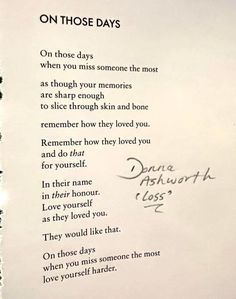 ON THOSE DAYS
On those days
when you miss someone the most
as though your memories
are sharp enough
to slice through skin and bone
remember how they loved you.
Remember how they loved you
and do that
for yourself.
In their name
in their honour.
Love yourself
as they loved you.
They would like that.
On those days
when you miss someone the most
love yourself harder.
Donna
Ashworth
'Loss'